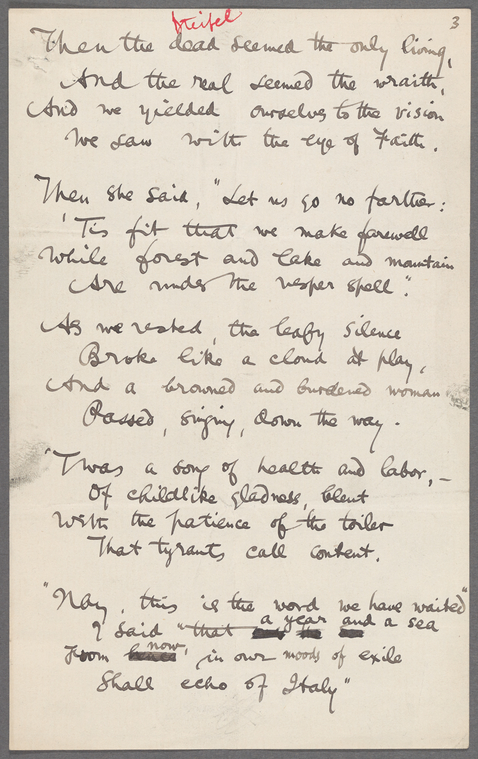 Treifel
3
Then the dead seemed the only living,
And the real seemed the wraith,
And we yielded ourselves to the vision
We saw with the eye of Faith.
Then she said, "Let us go no farther:
'Tis fit that we make farewell
While forest and lake and mountain
Are under the vesper spell".
As we rested, the leafy silence
Broke like a cloud at play,
And a browned and burdened woman
Passed, singing, down the way.
'Twas a song of health and labor,—
Of childlike gladness, blent
With the patience of the toiler
That tyrants call content.
"Nay, this is the word we have waited"
I said "that a year and a sea
From now, in our moods of exile
Shall echo of Italy"